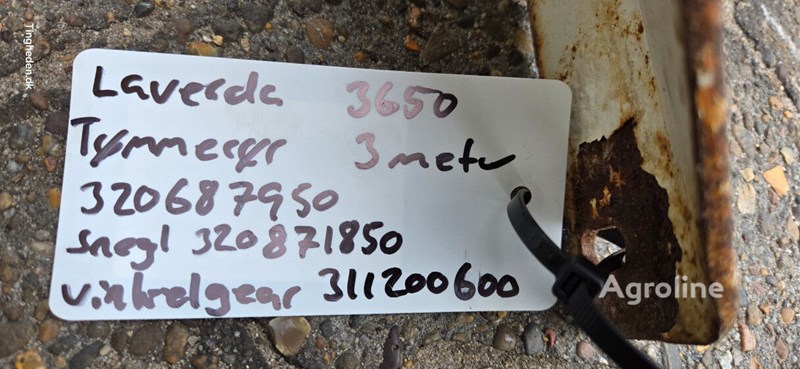 Laverda 3650
Tømmerør 3 meter
320687950
snegl 320871850
vinkelgear 311200600
Agroline
Tingheden.dk